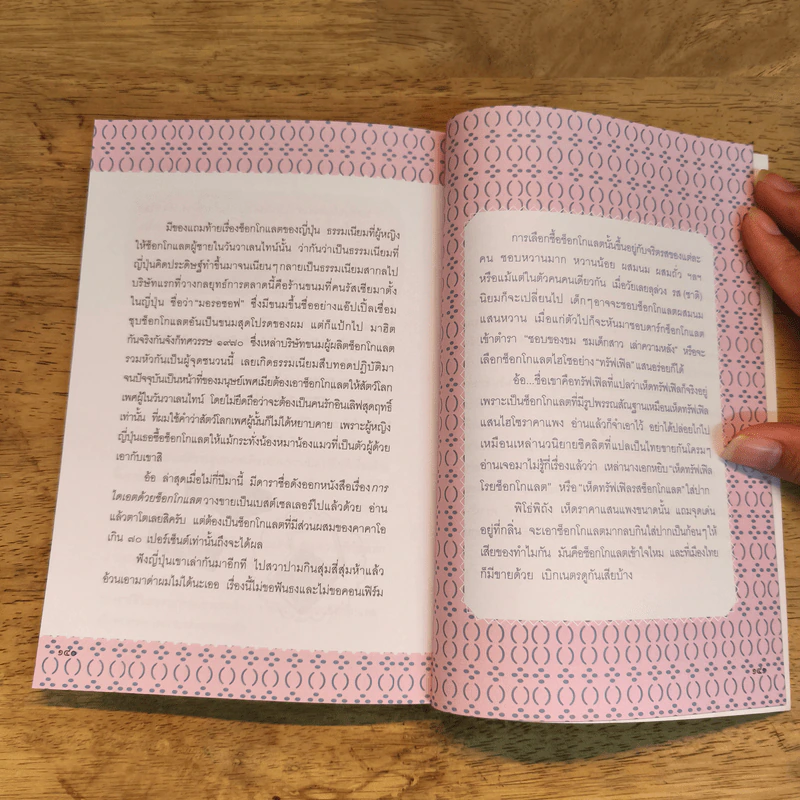 มีของแถมท้ายเรื่องช็อกโกแลตของญี่ปุ่น ธรรมเนียมที่ผู้หญิง
ให้ช็อกโกแลตผู้ชายในวันวาเลนไทน์นั้น ว่ากันว่าเป็นธรรมเนียมที่
ญี่ปุ่นคิดประดิษฐ์ทำขึ้นมาจนเนียนๆ กลายเป็นธรรมเนียมสากลไป
บริษัทแรกที่วางกลยุทธ์การตลาดนี้คือร้านขนมที่คนรัสเซียมาตั้ง
ในญี่ปุ่น ชื่อว่า "มอรอซอฟ" ซึ่งมีขนมขึ้นชื่ออย่างแอ๊ปเปิ้ลเชื่อม
ชุบช็อกโกแลตอันเป็นขนมสุดโปรดของผม แต่ก็แป้กไป มาฮิต
กันจริงกันจังก็ทศวรรษ ๑๙๗๐ ซึ่งเหล่าบริษัทขนมผู้ผลิตช็อกโกแลต
รวมหัวกันเป็นผู้จุดชนวนนี้ เลยเกิดธรรมเนียมสืบทอดปฏิบัติมา
จนปัจจุบันเป็นหน้าที่ของมนุษย์เพศเมียต้องเอาช็อกโกแลตให้สัตว์โลก
เพศผู้ในวันวาเลนไทน์ โดยไม่ยึดถือว่าจะต้องเป็นคนรักอินเลิฟสุดฤทธิ์
เท่านั้น ที่ผมใช้คำว่าสัตว์โลกเพศผู้นั้นก็ไม่ได้หยาบคาย เพราะผู้หญิง
ญี่ปุ่นเธอซื้อช็อกโกแลตให้แม้กระทั่งน้องหมาน้องแมวที่เป็นตัวผู้ด้วย
เอากับเขาสิ
อ้อ ล่าสุดเมื่อไม่กี่ปีมานี้ มีดาราชื่อดังออกหนังสือเรื่อง การ
ไดเอตด้วยช็อกโกแลต วางขายเป็นเบสต์เซลเลอร์ไปแล้วด้วย อ่าน
แล้วตาโตเลยสิครับ แต่ต้องเป็นช็อกโกแลตที่มีส่วนผสมของคาคาโอ
เกิน ๗๐ เปอร์เซ็นต์เท่านั้นถึงจะได้ผล
ฟังญี่ปุ่นเขาเล่ากันมาอีกที ไปสวาปามกินสุ่มสี่สุ่มห้าแล้ว
อ้วนเอามาด่าผมไม่ได้นะเออ เรื่องนี้ไม่ขอฟันธงและไม่ขอคอนเฟิร์ม
๑๕๐
การเลือกซื้อช็อกโกแลตนั้นขึ้นอยู่กับจริตรสของแต่ละ
คน ชอบหวานมาก หวานน้อย ผสมนม ผสมถั่ว ฯลฯ
หรือแม้แต่ในตัวคนคนเดียวกัน เมื่อวัยเลยลุล่วง รส (ชาติ)
นิยมก็จะเปลี่ยนไป เด็กๆ อาจจะชอบช็อกโกแลตผสมนม
แสนหวาน เมื่อแก่ตัวไปก็จะหันมาชอบดาร์กช็อกโกแลต
เข้าตำรา "ชอบของขม ชมเด็กสาว เล่าความหลัง" หรือจะ
เลือกช็อกโกแลตไฮโซอย่าง "ทรัฟเฟิล" แสนอร่อยก็ได้
อ้อ...ชื่อเขาคือทรัฟเฟิลที่แปลว่าเห็ดทรัฟเฟิลก็จริงอยู่
เพราะเป็นช็อกโกแลตที่มีรูปพรรณสัณฐานเหมือนเห็ดทรัฟเฟิล
แสนไฮโซราคาแพง อ่านแล้วก็จำเอาไว้ อย่าได้ปล่อยไก่ไป
เหมือนเหล่านวนิยายชิคลิตที่แปลเป็นไทยขายกันโครมๆ
อ่านเจอมาไม่รู้กี่เรื่องแล้วว่า เหล่านางเอกหยิบ "เห็ดทรัฟเฟิล
โรยช็อกโกแลต" หรือ "เห็ดทรัฟเฟิลรสช็อกโกแลต" ใส่ปาก
พิโธ่พิถัง เห็ดราคาแสนแพงขนาดนั้น แถมจุดเด่น
อยู่ที่กลิ่น จะเอาช็อกโกแลตมากลบกินใส่ปากเป็นก้อนๆ ให้
เสียของทำไมกัน มันคือช็อกโกแลตเข้าใจไหม และที่เมืองไทย
ก็มีขายด้วย เบิกเนตรดูกันเสียบ้าง
๑๕๑